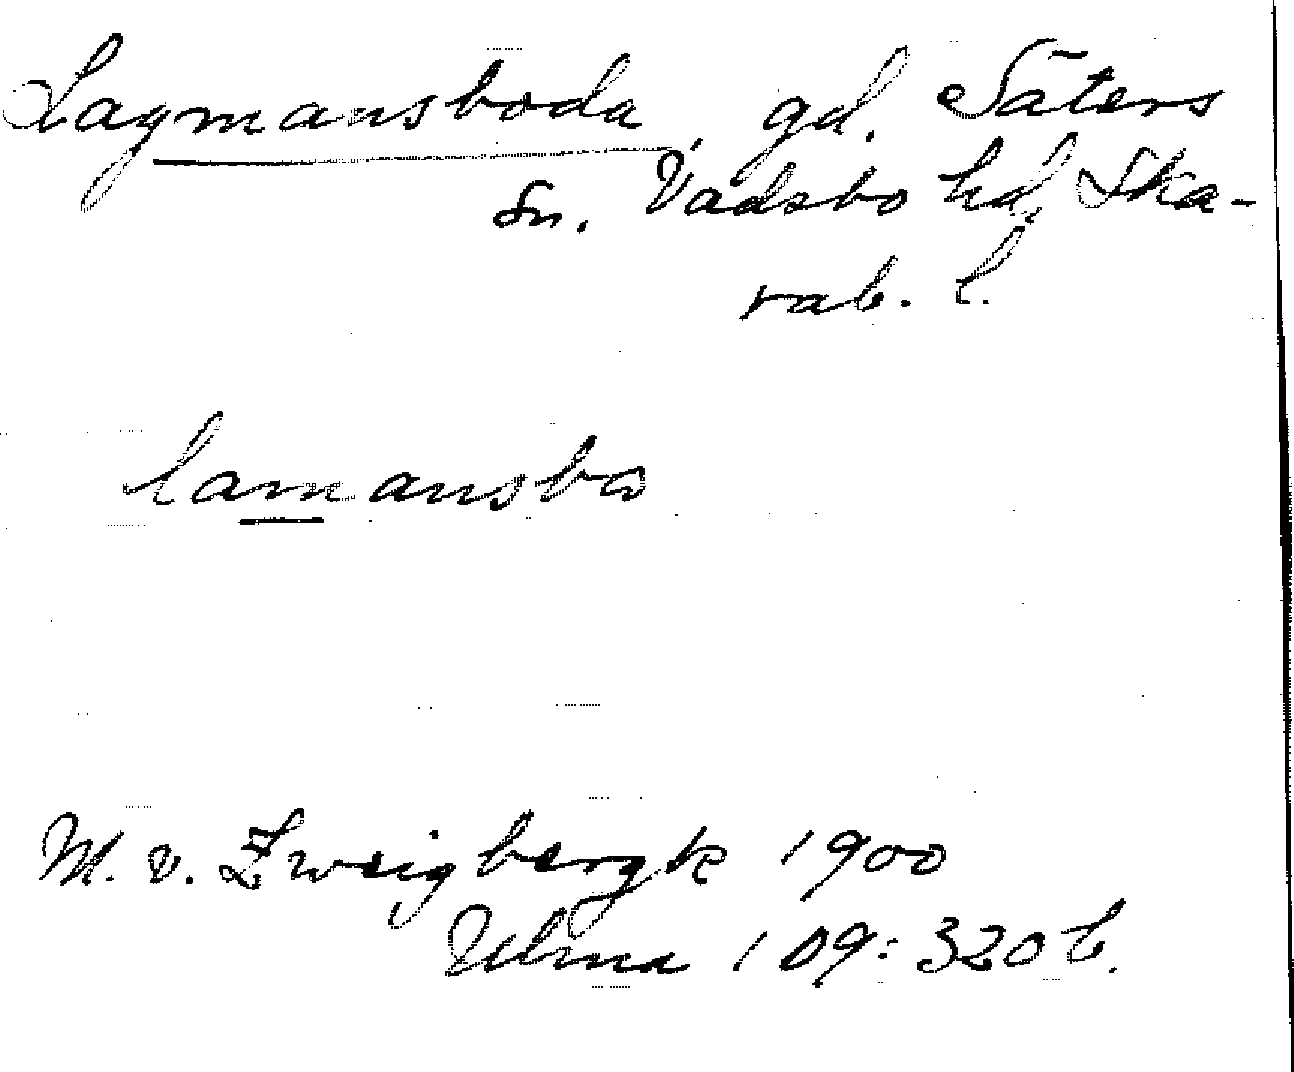 Lagmansboda, gd. Säters
Sn. Vadsbo hd, Ska-
rab. l.
lamansbo
M. v. Zweigbergk 1900
Ulma 109:320 b.